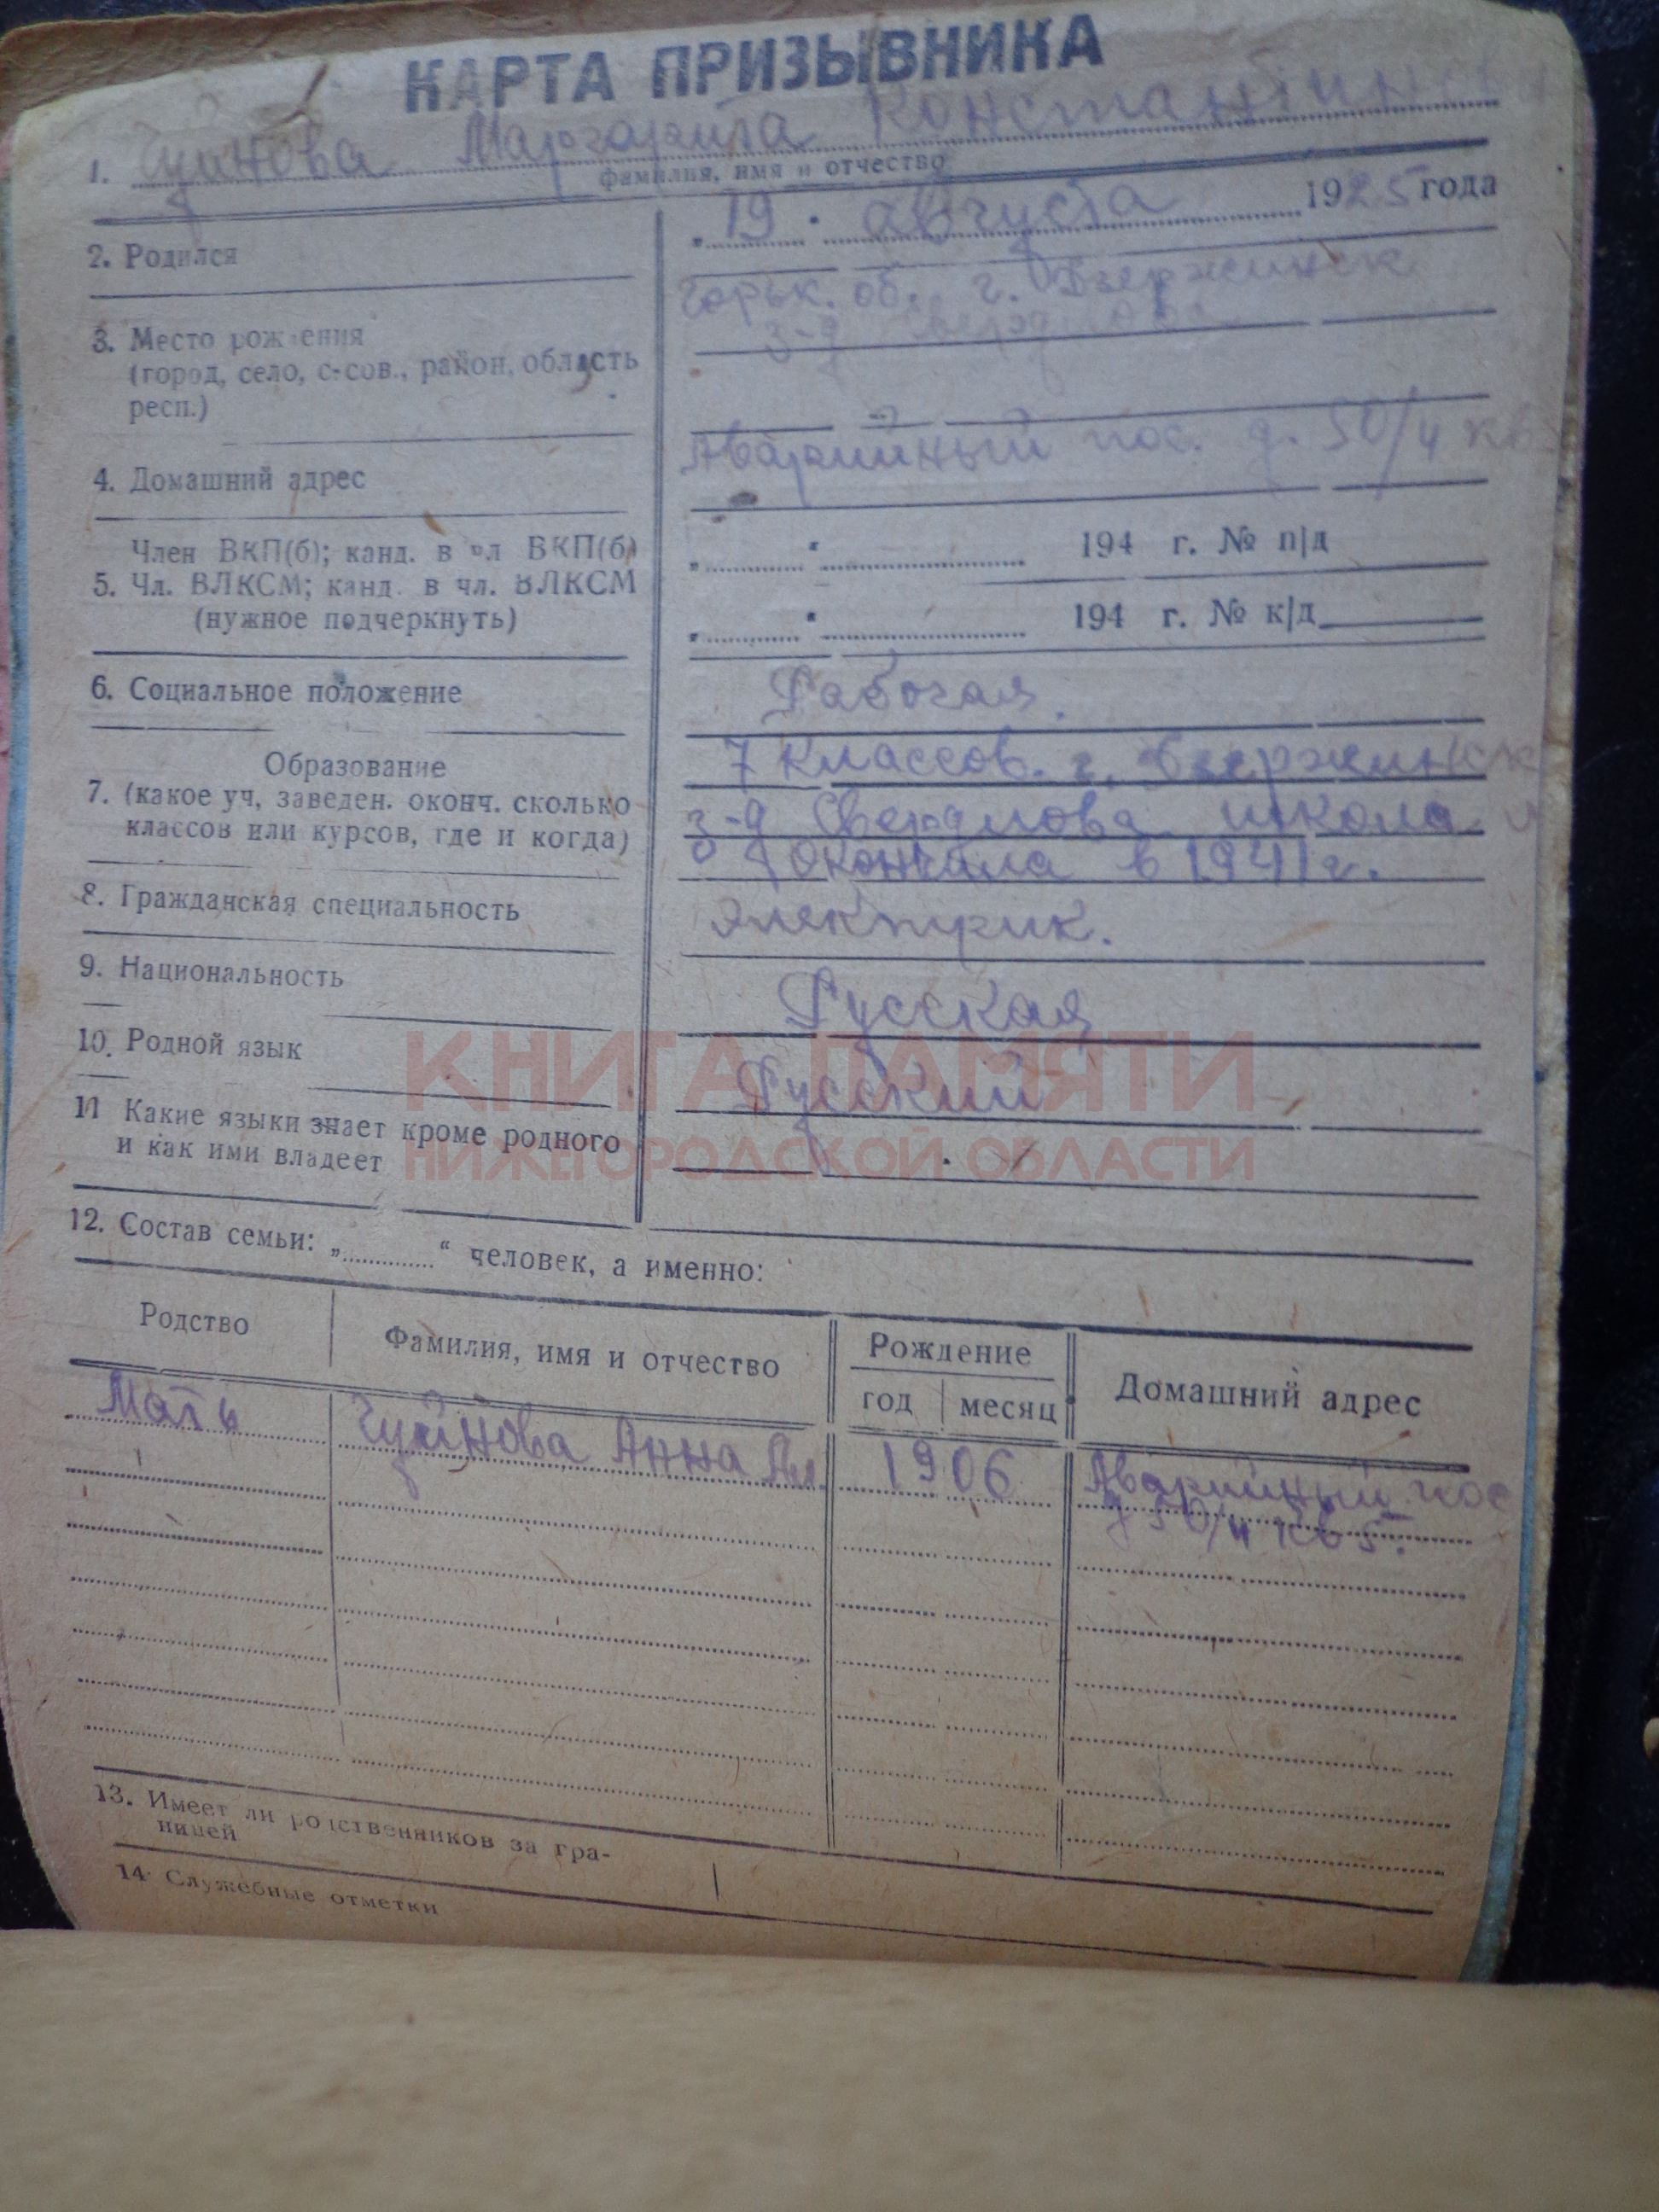 КАРТА ПРИЗЫВНИКА
1. Чуйнова Маргарита Константинов
фамилия, имя и отчество
2. Родился „19" августа 1925 года
3. Место рождения
(город, село, с-сов., район, область
респ.)
Горьк. об. г. Дзержинск
з-д Свердлова
4. Домашний адрес
Аварийный пос. д. 50/4 кв
Член ВКП(б); канд. в чл ВКП(б)
5. Чл. ВЛКСМ; канд. в чл. ВЛКСМ
(нужное подчеркнуть)
„ " 194 г. № п/д
„ " 194 г. № к/д
6. Социальное положение Рабочая.
Образование
7. (какое уч. заведен. оконч. сколько
классов или курсов, где и когда)
7 классов. г. Дзержинск
з-д Свердлова школа
окончила в 1941 г.
8. Гражданская специальность Электрик.
9. Национальность Русская
10. Родной язык Русский
11 Какие языки знает кроме родного
и как ими владеет
КНИГА ПАМЯТИ
НИЖЕГОРОДСКОЙ ОБЛАСТИ
12. Состав семьи: „ " человек, а именно:
Родство Фамилия, имя и отчество Рождение Домашний адрес
год месяц
Мать Чуйнова Анна Ал. 1906 Аварийный пос
д 50/4 кв 5.
13. Имеет ли родственников за гра-
ницей
14. Служебные отметки